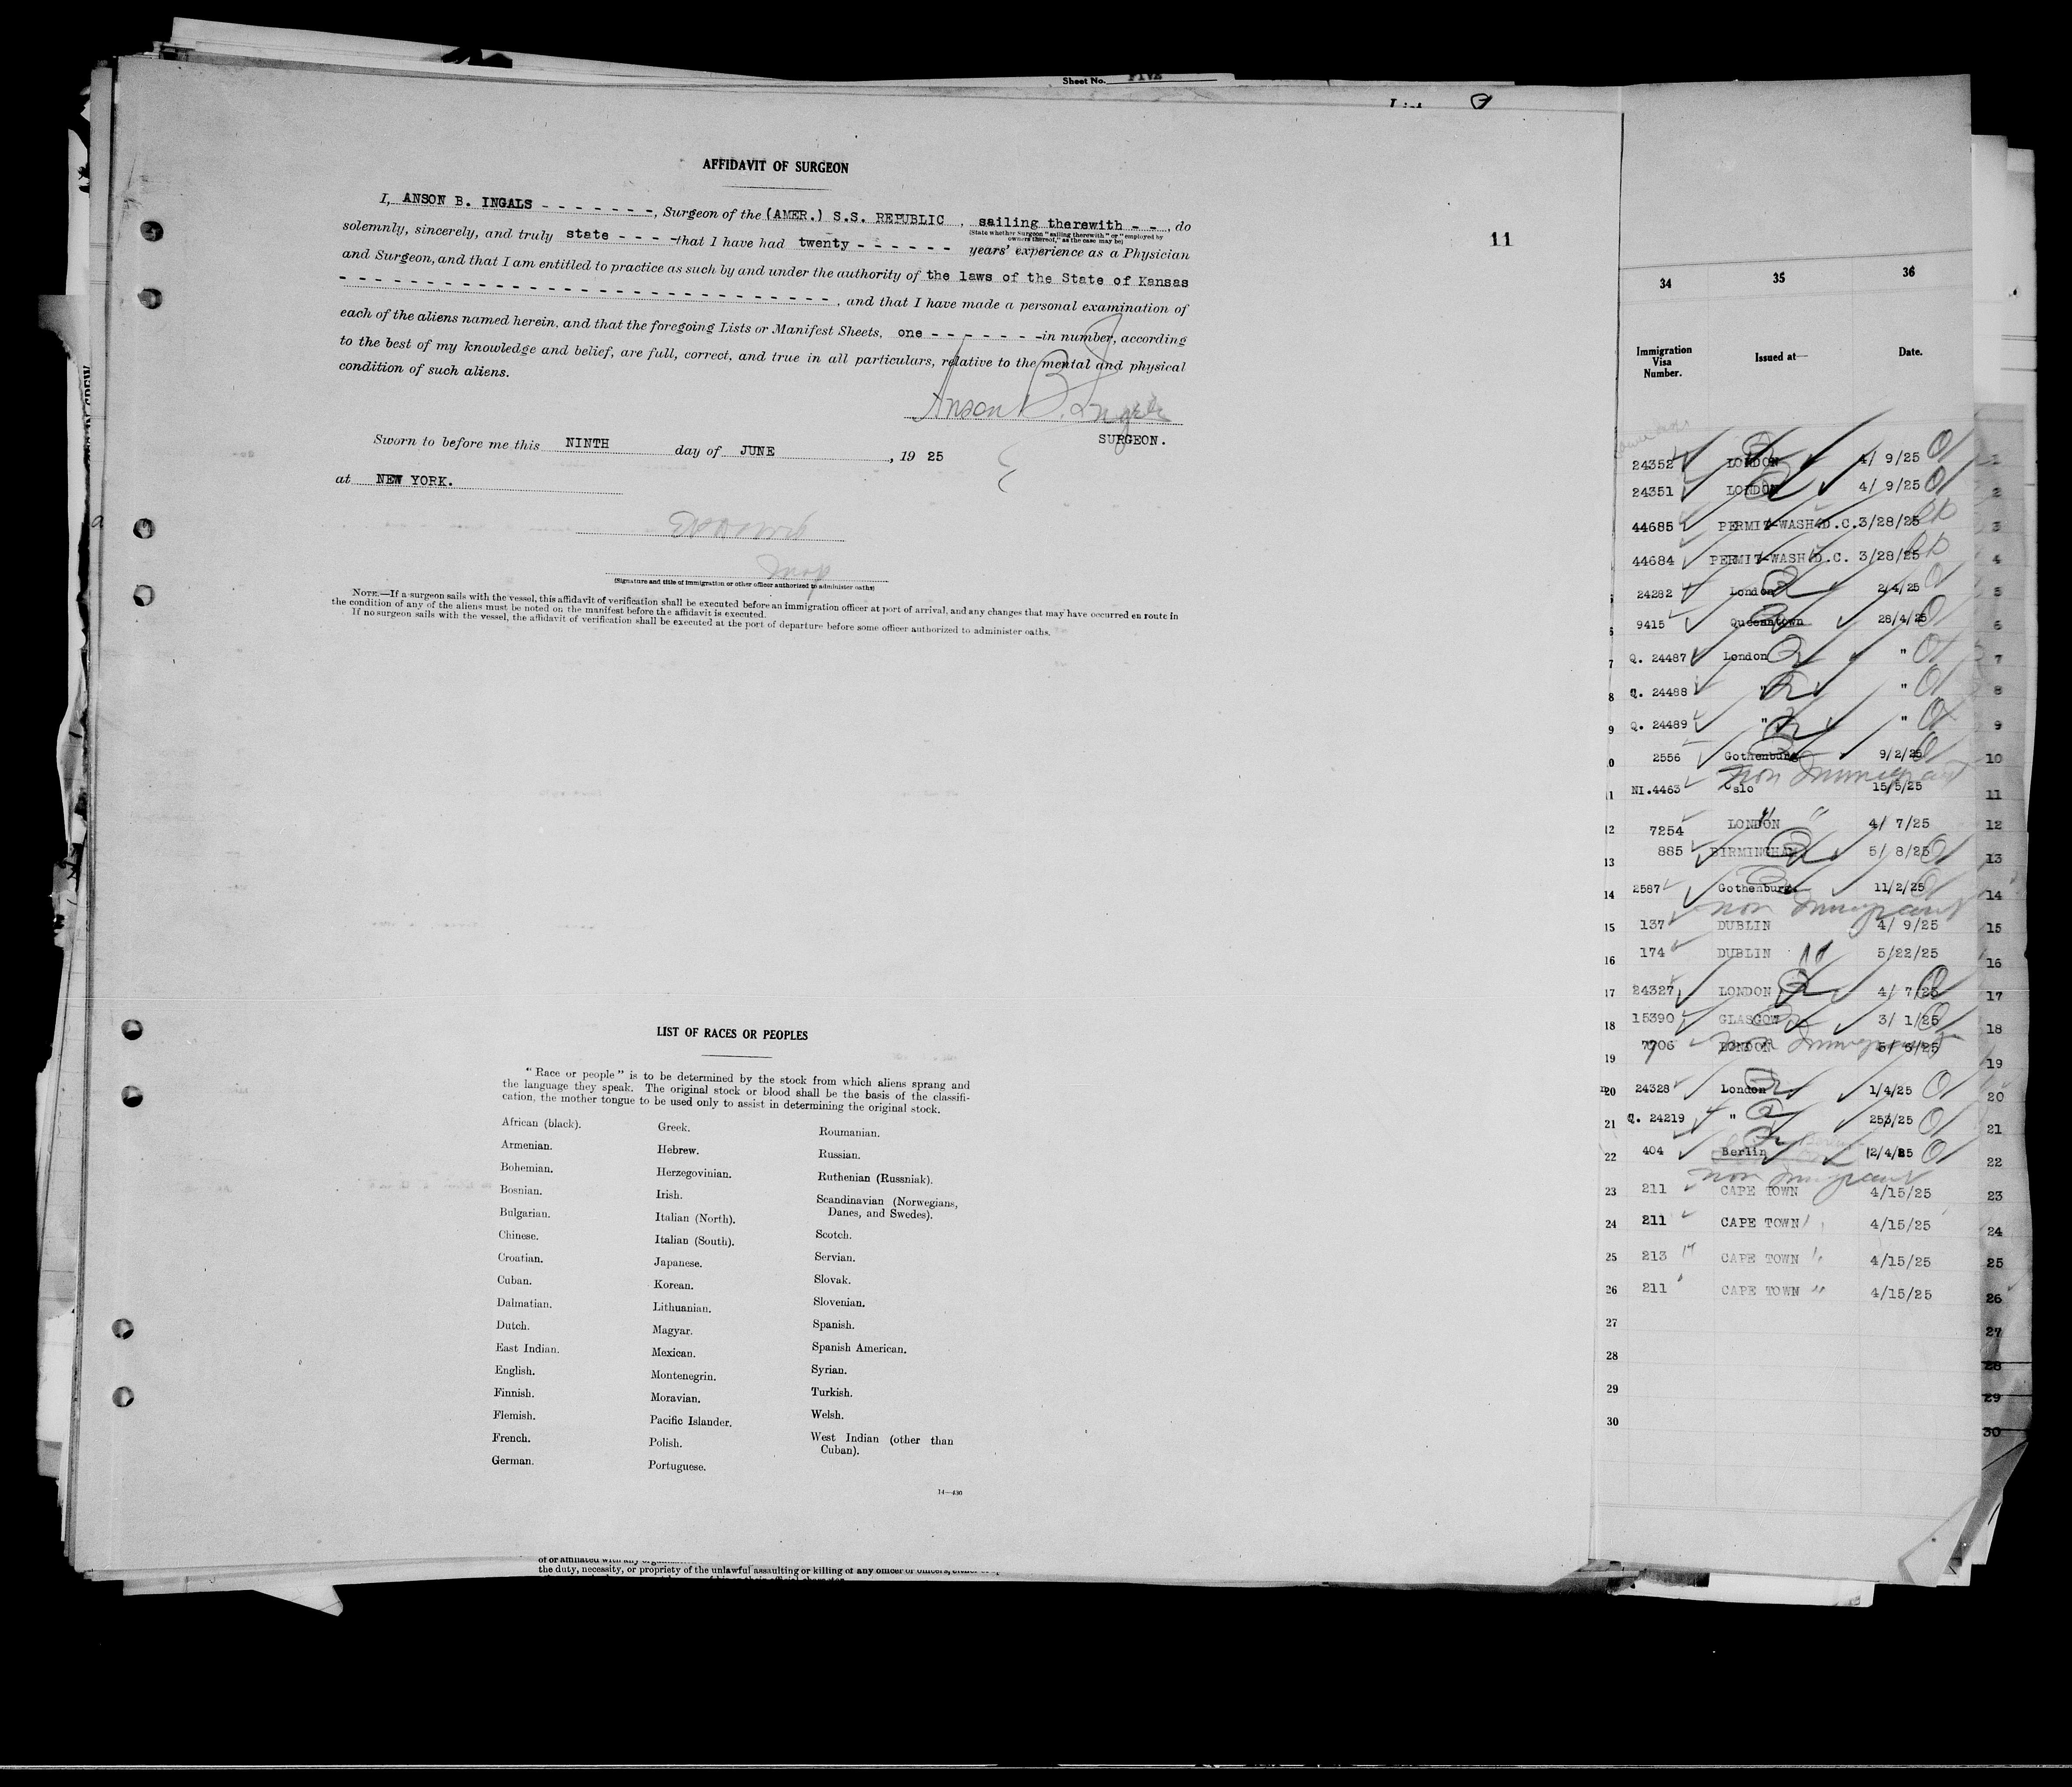 Sheet No. FIVE
AFFIDAVIT OF SURGEON
I, ANSON B. INGALS - - - - - - -, Surgeon of the (AMER.) S.S. REPUBLIC , sailing therewith - - , do
(State whether Surgeon "sailing therewith" or "employed by owners thereof," as the case may be)
solemnly, sincerely, and truly state - - - - that I have had twenty - - - - - - years' experience as a Physician
and Surgeon, and that I am entitled to practice as such by and under the authority of the laws of the State of Kansas
- - - - - - - - - - - - - - - - - - - - - - - - - - - - , and that I have made a personal examination of
each of the aliens named herein, and that the foregoing Lists or Manifest Sheets, one - - - - - - - in number, according
to the best of my knowledge and belief, are full, correct, and true in all particulars, relative to the mental and physical
condition of such aliens.
Anson B. Ingals
SURGEON.
Sworn to before me this NINTH day of JUNE , 19 25
at NEW YORK.
(Signature and title of immigration or other officer authorized to administer oaths)
NOTE.—If a surgeon sails with the vessel, this affidavit of verification shall be executed before an immigration officer at port of arrival, and any changes that may have occurred en route in
the condition of any of the aliens must be noted on the manifest before the affidavit is executed.
If no surgeon sails with the vessel, the affidavit of verification shall be executed at the port of departure before some officer authorized to administer oaths.
11
LIST OF RACES OR PEOPLES
"Race or people" is to be determined by the stock from which aliens sprang and
the language they speak. The original stock or blood shall be the basis of the classifi-
cation, the mother tongue to be used only to assist in determining the original stock.
African (black).
Armenian.
Bohemian.
Bosnian.
Bulgarian.
Chinese.
Croatian.
Cuban.
Dalmatian.
Dutch.
East Indian.
English.
Finnish.
Flemish.
French.
German.
Greek.
Hebrew.
Herzegovinian.
Irish.
Italian (North).
Italian (South).
Japanese.
Korean.
Lithuanian.
Magyar.
Mexican.
Montenegrin.
Moravian.
Pacific Islander.
Polish.
Portuguese.
Roumanian.
Russian.
Ruthenian (Russniak).
Scandinavian (Norwegians,
Danes, and Swedes).
Scotch.
Servian.
Slovak.
Slovenian.
Spanish.
Spanish American.
Syrian.
Turkish.
Welsh.
West Indian (other than
Cuban).
14—430
the duty, necessity, or propriety of the unlawful assaulting or killing of any officer or officers,
34 35 36
Immigration Visa Number. Issued at— Date.
24352 LONDON 4/ 9/25 1
24351 LONDON 4/ 9/25 2
44685 PERMIT-WASH.D.C. 3/28/25 3
44684 PERMIT-WASH.D.C. 3/28/25 4
24282 London 2/4/25 5
9415 Queenstown 28/4/25 6
7 Q. 24487 London " 7
8 Q. 24488 " " 8
9 Q. 24489 " " 9
2556 Gothenburg 9/2/25 10
non Immigrant
NI.4463 Oslo 15/5/25 11
12 7254 LONDON 4/ 7/25 12
13 885 BIRMINGHAM 5/ 8/25 13
14 2587 Gothenburg 11/2/25 14
non Immigrant
15 137 DUBLIN 4/ 9/25 15
16 174 DUBLIN 5/22/25 16
17 24327 LONDON 4/ 7/25 17
18 15390 GLASGOW 3/ 1/25 18
non Immigrant
19 7906 LONDON 5/ 5/25 19
20 24328 London 1/4/25 20
21 Q. 24219 " 25/3/25 21
22 404 Berlin 2/4/25 22
non Immigrant
23 211 CAPE TOWN 4/15/25 23
24 211 CAPE TOWN 4/15/25 24
25 213 CAPE TOWN 4/15/25 25
26 211 CAPE TOWN 4/15/25 26
27 27
28 28
29 29
30 30